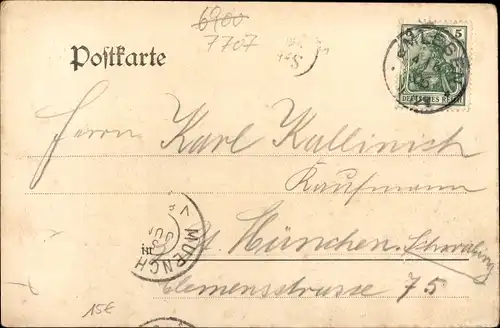 6900
7707
Postkarte
5
DEUTSCHES REICH
Herrn Karl Kallinich
Kaufmann
in München-Schwabing
Clemensstrasse 75
MUENCH
15€